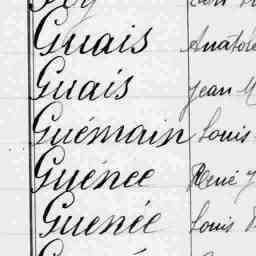 Guais Anatole
Guais Jean M
Guémain Louis
Guénee René J
Guenée Louis